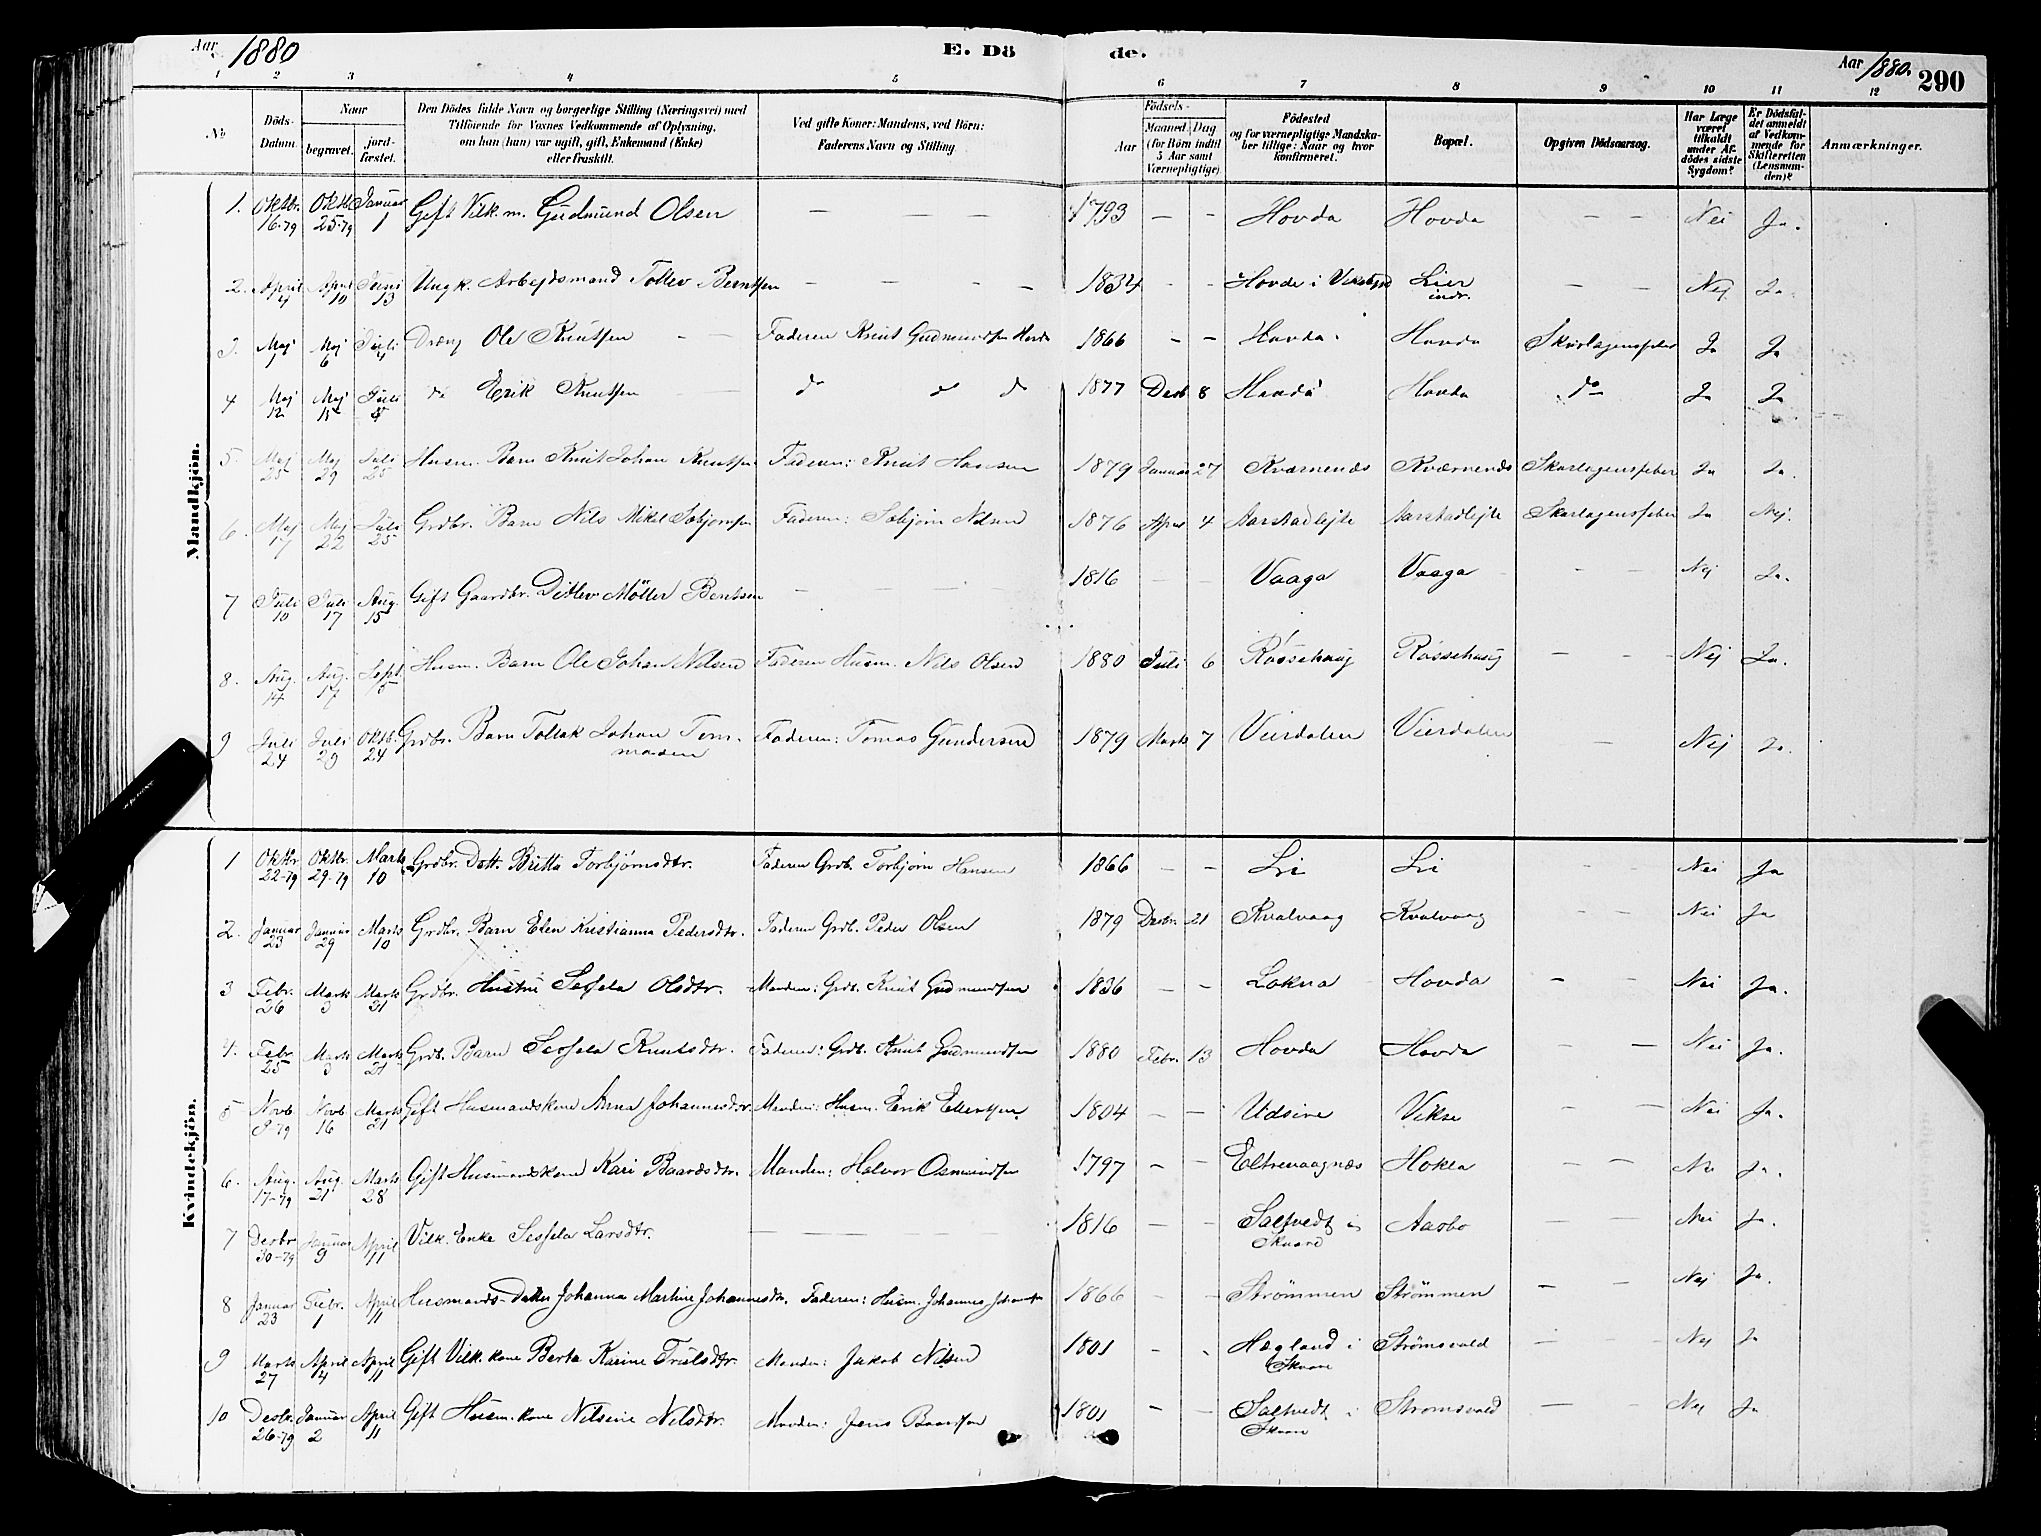 Aar 1880
E. Dö de.
Aar 1880.
290
1 2 3 4 5 6 7 8 9 10 11 12
No
Döds-Datum.
Naar
begravet.
jord-fæstet.
Den Dödes fulde Navn og borgerlige Stilling (Næringsvei) med
Tilföiende for Voxnes Vedkommende af Oplysning,
om han (hun) var ugift, gift, Enkemand (Enke)
eller fraskilt.
Ved gifte Koner: Mandens, ved Börn:
Faderens Navn og Stilling
Aar
Födsels-
Maaned. Dag
(for Börn indtil
5 Aar samt
Værnepligtige)
Födested
og for værnepligtige Mandska-
ber tillige: Naar og hvor
konfirmeret.
Bopæl.
Opgiven Dödsaarsag.
Har Læge
været
tilkaldt
under Af-
dödes sidste
Sygdom?
Er Dödsfal-
det anmeldt
af Vedkom-
mende for
Skifteretten
(Lensman-
den)?
Anmærkninger.
Mandkjön.
1. Oktbr. 16-79 Oktb 25-79 Januar 1 Gift Vilk. m. Gudmund Olsen — — — — 1793 — — Hovda Hovda — — Nei Ja.
2. April 4 April 10 Juni 13 Ungk. Arbejdsmand Tollev Berntsen — — — — 1834 - - Hovde i Lier indr. — — Nej Ja.
3. Maj 1 Maj 6 Juli 4 Dreng Ole Knutsen — — Faderen Knut Gudmundsen Hovda 1866 - - Hovda Hovda Skarlagensfeber Ja Ja
4 Maj 12 Maj 15 Juli do Erik Knutsen — do do do 1877 Desb 8 Hovda Hovda do Ja Ja
5. Maj 25 Maj 29 Juli 25 Husm. Barn Knut Johan Knutsen Faderen: Knut Hansen 1879 Januar 27 Kværnenes Kværnenes Skarlagensfeber Ja Ja.
6. Maj 17 Maj 22 Juli 25 Grdbr. Barn Nils Mikal Sebjørnsen Faderen: Sebjørn Nilsen 1876 April 4 Aarstadlejte Aarstadlejte Skarlagensfeber Ja Nej.
7 Juli 10 Juli 17 Aug. 15 Gift Gaardbr. Ditlev Möller Bentsen — — — — 1816 — — Vaaga Vaaga — — Nej Ja.
8. Aug. 14 Aug. 17 Sept. 5 Husm. Barn Ole Johan Nilsen Faderen Husm. Nils Olsen 1880 Juli 6 Røssehaug Røssehaug — — Nej Ja.
9 Juli 24 Juli 29 Oktb. 24 Grdbr. Barn Tollak Johan Tom-
masen Faderen: Tomas Gundersen 1879 Marts 7 Vierdalen Vierdalen — Nej Ja.
Kvindekjön.
1 Oktbr 22-79 Oktbr. 29-79 Marts 10 Grdbr. Datt. Britta Torbjørnsdtr. Faderen Grdb. Torbjørn Hansen 1866 — — Li Li Nei Ja
2. Januar 23 Januar 29 Marts 10 Grdbr. Barn Elen Kristianna Pedersdtr. Faderen Grdb. Peder Olsen 1879 Desbr. 21 Kvalvaag Kvalvaag — — Nei Ja
3 Febr. 26 Marts 3 Marts 21 Grdbr. Hustru Sessela Olsdtr. Manden: Grdb. Knut Gudmundsen 1836 — — Lokna Hovda — — Nei Ja.
4. Febr. 25 Marts 3 Marts 21 Grdb. Barn Sessela Knutsdtr. Faderen: Grdb. Knut Gudmundsen 1880 Febr. 13 Hovda Hovda — — Nei Ja.
5 Novb 8-79 Novb 16 Marts 21 Gift Husmandskone Anna Johannesdtr. Manden: Husm. Erik Ellertsen 1804 — — Udsire Vikse — — Nei Ja.
6. Aug. 17-79 Aug. 21 Marts 28 Gift Husmandskone Kari Baardsdtr. Manden: Halvor Osmundsen 1797 — — Eltrevaagnæs Hokla — — Ja.
7 Desbr 30-79 Januar 9 April 11 Vilk. Enke Sessela Larsdtr. — — — 1816 — — Saltvedt i
Skaare Aasbo — — Nei Ja.
8 Januar 23 Febr. 1 April 11 Husmands-Datter Johanna Martine Johannesdtr. Faderen: Husm. Johannes 1866 - - Strømmen Strømmen — — Nej Ja.
9 Marts 27 April 4 April 11 Gift Vilk. kone Berta Karine Trulsdtr. Manden: Jakob Nilsen 1801 - - Hægland i
Skaare Strømsvald — — Nej Ja
10 Desbr. 26-79 Januar 2 April 11 Gift Husm. kone Nilsine Nilsdtr. Manden: Jens Baardsen 1801 — — Saltvedt i
Skaare Strømsvald — — Nej Ja